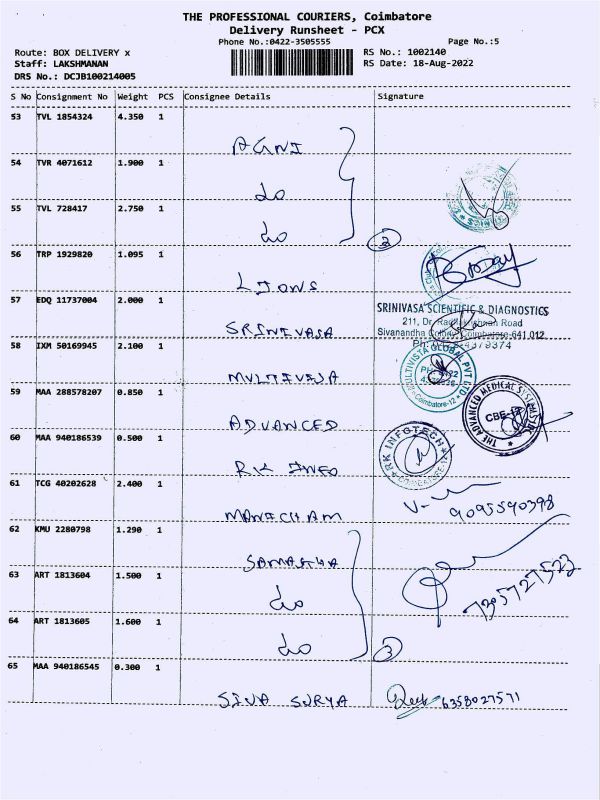 THE PROFESSIONAL COURIERS, Coimbatore
Delivery Runsheet - PCX
Phone No.:0422-3505555 Page No.:5
Route: BOX DELIVERY x RS No.: 1002140
Staff: LAKSHMANAN RS Date: 18-Aug-2022
DRS No.: DCJB100214005
S No Consignment No Weight PCS Consignee Details Signature
53 TVL 1854324 4.350 1
AGNI
54 TVR 4071612 1.900 1
do
55 TVL 728417 2.750 1
do 3
56 TRP 1929820 1.095 1
LIONS
57 EDQ 11737004 2.000 1
SRINIVASA SCIENTIFIC & DIAGNOSTICS
211, Dr. Radhakrishnan Road
SRINIVASA
Sivanandha Colony, Coimbatore-641 012.
58 IXM 50169945 2.100 1
MULTIVISTA GLOBAL PVT LTD
Coimbatore-12
59 MAA 288578207 0.850 1
THE ADVANCED MEDICAL SYSTEMS
CBE-12
ADVANCED
60 MAA 940186539 0.500 1
RK INFOTECH
COIMBATORE-12
RK INFO
61 TCG 40202628 2.400 1
MANICHAM 9095590398
62 KMU 2280798 1.290 1
63 ART 1813604 1.500 1
do 7305727523
64 ART 1813605 1.600 1
do 3
65 MAA 940186545 0.300 1
SIVA SURYA 6358027571